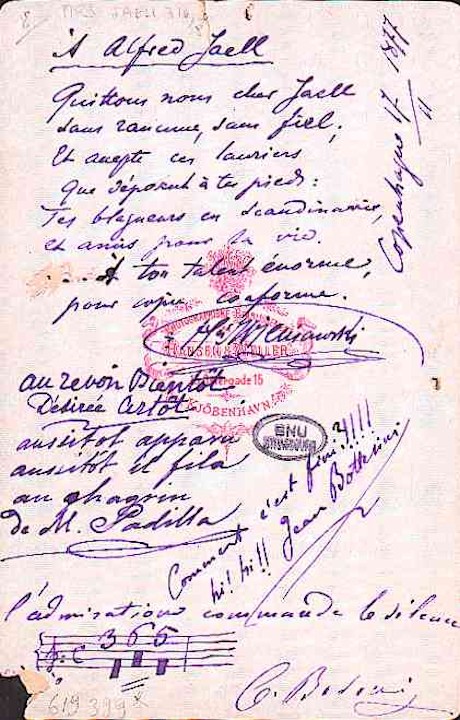 MRS JAELL 316
À Alfred Jaell
Quittons nous cher Jaell
sans rancune, sans fiel,
Et accepte ces lauriers
Que déposent à tes pieds:
Tes blagueurs en Scandinavie,
et amis pour la vie.
..... À ton talent énorme,
pour copie conforme.
Copenhague 17/11 1877
Hri Wieniawski
PHOTOGRAPHISKE
HANSEN & WELLER
gade 15
KJÖBENHAVN.
au revoir Bientôt
Désirée Artôt
aussitôt apparu
aussitôt il fila
au chagrin
de M. Padilla
BNU
STRASBOURG
Comment c'est fini?!!!
hi! hi!! Jean
l'admiration commande le silence
3 6 5
C
619 399